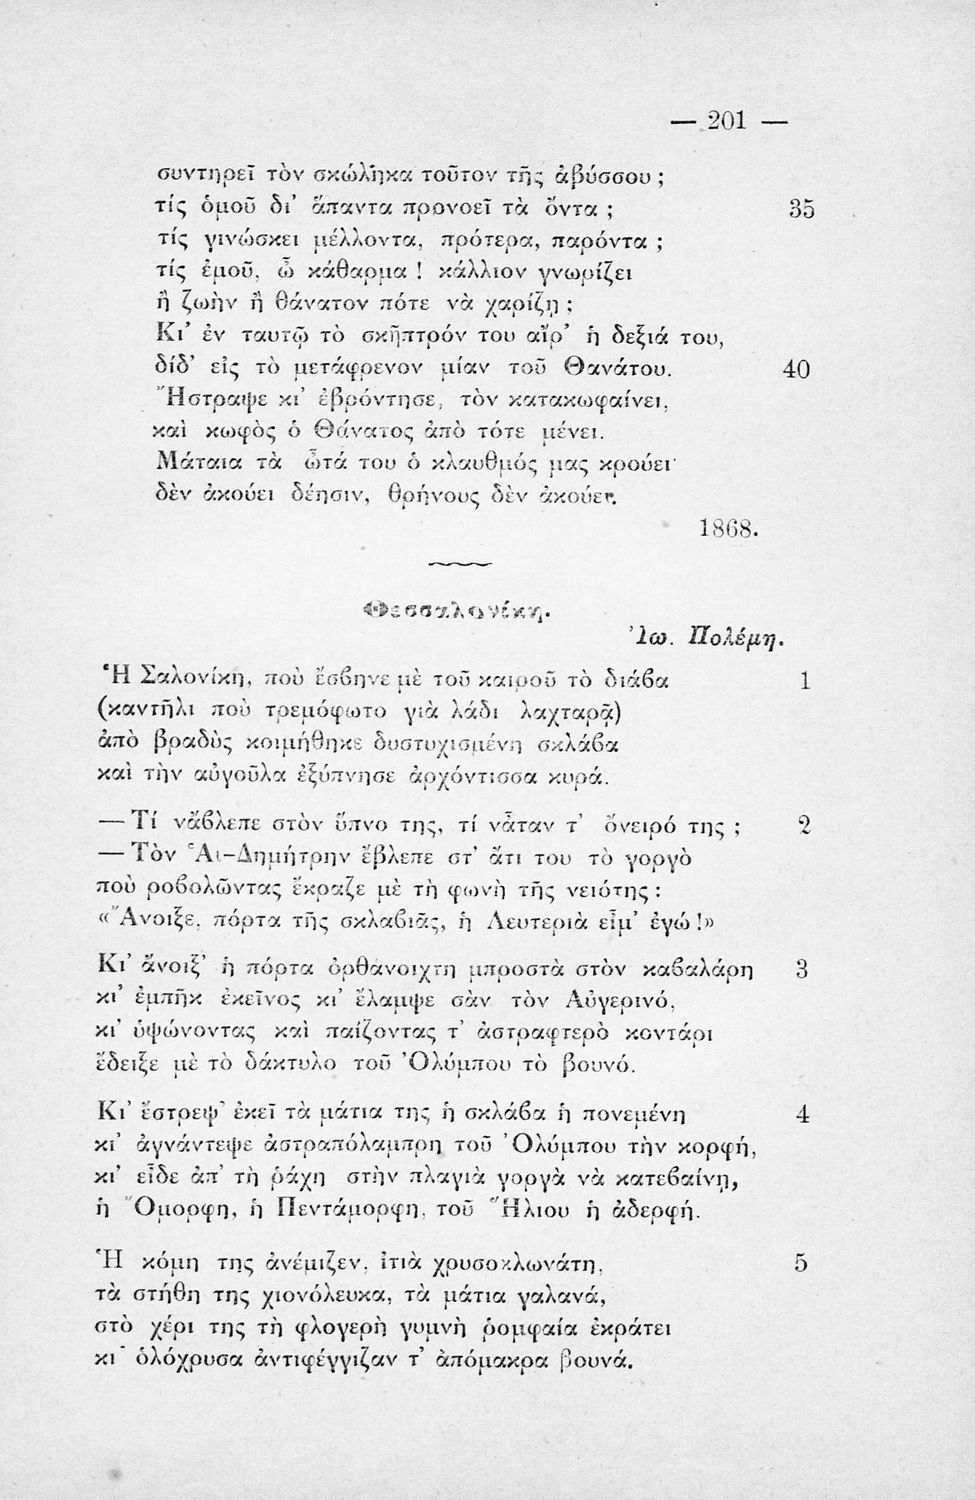 — 201 —
συντηρεῖ τὸν σκώληκα τοῦτον τῆς ἀβύσσου ;
τίς ὁμοῦ δι' ἅπαντα προνοεῖ τὰ ὄντα ; 35
τίς γινώσκει μέλλοντα, πρότερα, παρόντα ;
τίς ἐμοῦ, ὦ κάθαρμα ! κάλλιον γνωρίζει
ἢ ζωὴν ἢ θάνατον πότε νὰ χαρίζῃ ;
Κι' ἐν ταυτῷ τὸ σκῆπτρόν του αἴρ' ἡ δεξιά του,
δίδ' εἰς τὸ μετάφρενον μίαν τοῦ Θανάτου. 40
Ἤστραψε κι' ἐβρόντησε, τὸν κατακωφαίνει,
καὶ κωφὸς ὁ Θάνατος ἀπὸ τότε μένει.
Μάταια τὰ ὦτά του ὁ κλαυθμός μας κρούει·
δὲν ἀκούει δέησιν, θρήνους δὲν ἀκούει.
1868.
Θεσσαλονίκη.
Ἰω. Πολέμη.
Ἡ Σαλονίκη, ποὺ ἔσβηνε μὲ τοῦ καιροῦ τὸ διάβα 1
(καντῆλι ποὺ τρεμόφωτο γιὰ λάδι λαχταρᾷ)
ἀπὸ βραδὺς κοιμήθηκε δυστυχισμένη σκλάβα
καὶ τὴν αὐγοῦλα ἐξύπνησε ἀρχόντισσα κυρά.
— Τί νἄβλεπε στὸν ὕπνο της, τί νἆταν τ' ὄνειρό της ; 2
— Τὸν Ἁι-Δημήτρην ἔβλεπε στ' ἄτι του τὸ γοργὸ
ποὺ ροβολῶντας ἔκραζε μὲ τὴ φωνὴ τῆς νειότης :
«Ἄνοιξε, πόρτα τῆς σκλαβιᾶς, ἡ Λευτεριὰ εἶμ' ἐγώ !»
Κι' ἄνοιξ' ἡ πόρτα ὀρθάνοιχτη μπροστὰ στὸν καβαλάρη 3
κι' ἐμπῆκ ἐκεῖνος κι' ἔλαμψε σὰν τὸν Αὐγερινό,
κι' ὑψώνοντας καὶ παίζοντας τ' ἀστραφτερὸ κοντάρι
ἔδειξε μὲ τὸ δάκτυλο τοῦ Ὀλύμπου τὸ βουνό.
Κι' ἔστρεψ' ἐκεῖ τὰ μάτια της ἡ σκλάβα ἡ πονεμένη 4
κι' ἀγνάντεψε ἀστραπόλαμπρη τοῦ Ὀλύμπου τὴν κορφή,
κι' εἶδε ἀπ' τὴ ῥάχη στὴν πλαγιὰ γοργὰ νὰ κατεβαίνῃ,
ἡ Ὄμορφη, ἡ Πεντάμορφη, τοῦ Ἥλιου ἡ ἀδερφή.
Ἡ κόμη της ἀνέμιζεν, ἰτιὰ χρυσοκλωνάτη, 5
τὰ στήθη της χιονόλευκα, τὰ μάτια γαλανά,
στὸ χέρι της τὴ φλογερὴ γυμνὴ ῥομφαία ἐκράτει
κι' ὁλόχρυσα ἀντιφέγγιζαν τ' ἀπόμακρα βουνά.